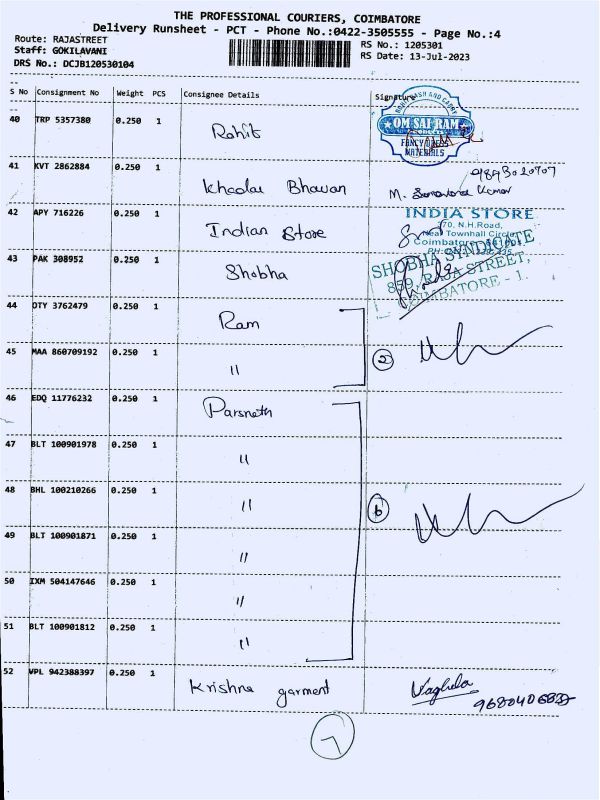 THE PROFESSIONAL COURIERS, COIMBATORE
Delivery Runsheet - PCT - Phone No.:0422-3505555 - Page No.:4
Route: RAJASTREET
Staff: GOKILAVANI
DRS No.: DCJB120530104
RS No.: 1205301
RS Date: 13-Jul-2023
S No Consignment No Weight PCS Consignee Details Signature
40 TRP 5357380 0.250 1 Rohit
OM SAI RAM
FANCY DRESS
MATERIALS
41 KVT 2862884 0.250 1 Bhavan M. Kumar
42 APY 716226 0.250 1 Indian Store
INDIA STORE
N.H.Road,
Near Townhall Circle
43 PAK 308952 0.250 1 Shobha
SHOBHA SYNDICATE
859, RAJA STREET,
COIMBATORE - 1.
44 OTY 3762479 0.250 1 Ram
45 MAA 860709192 0.250 1 "
2
46 EDQ 11776232 0.250 1 Parsneth
47 BLT 100901978 0.250 1 "
48 BHL 100210266 0.250 1 "
6
49 BLT 100901871 0.250 1 "
50 IXM 504147646 0.250 1 "
51 BLT 100901812 0.250 1 "
52 VPL 942388397 0.250 1 Krishna garment Vaghela
7